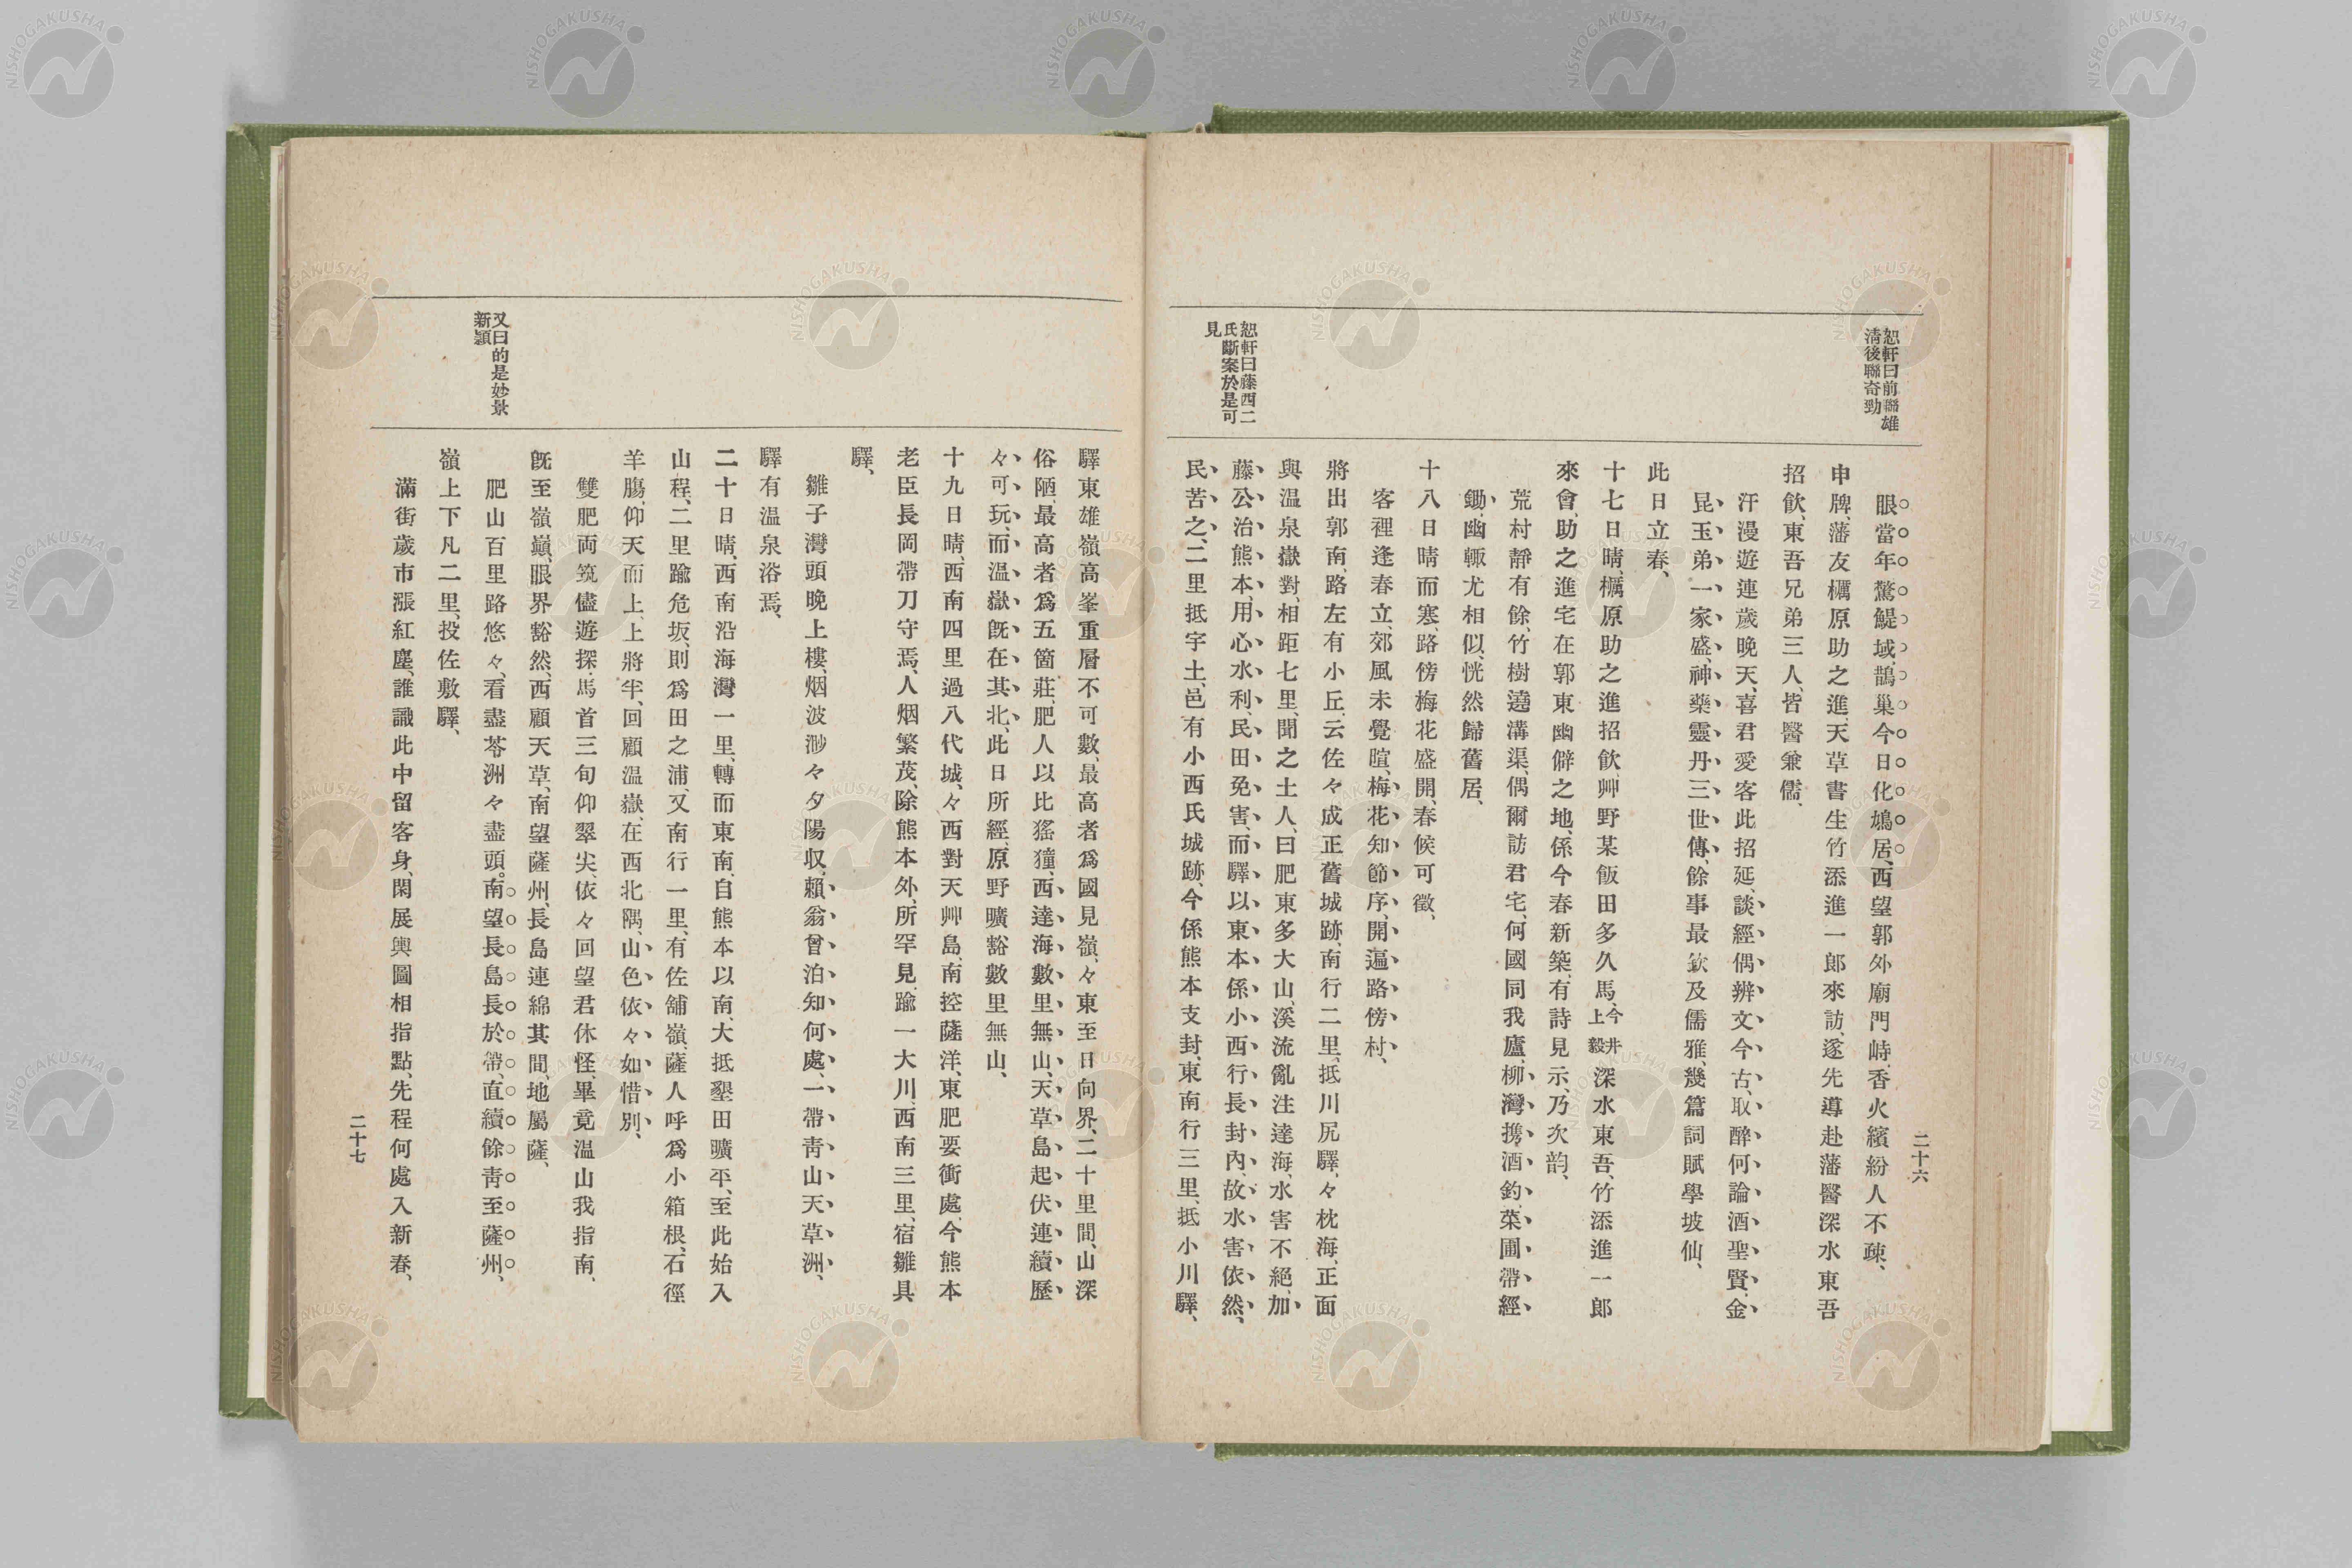 恕軒曰前聯雄
淸後聯奇勁
眼當年驚鯷域、鵲巢今日化鳩居、西望郭外廟門峙、香火繽紛人不疎、
申牌、藩友櫔原助之進、天草書生竹添進一郎來訪、遂先導赴藩醫深水東吾
招飮、東吾兄弟三人、皆醫兼儒、
汗漫遊連歲晚天、喜君愛客此招延、談經偶辨文今古、取醉何論酒聖賢、金
昆玉弟一家盛、神藥靈丹三世傳、餘事最欽及儒雅、幾篇詞賦學坡仙、
此日立春、
十七日晴、櫔原助之進招飮、艸野某飯田多久馬、今井
上毅深水東吾、竹添進一郎
來會、助之進宅在郭東幽僻之地、係今春新築、有詩見示、乃次韵、
荒村靜有餘、竹樹遶溝渠、偶爾訪君宅、何國同我廬、柳灣携酒釣、菜圃帶經
鋤、幽輙尤相似、恍然歸舊居、
十八日晴而塞、路傍梅花盛開、春候可徵、
客裡逢春立、郊風未覺暄、梅花知節序、開遍路傍村、
將出郭南、路左有小丘、云佐々成正舊城跡、南行二里、抵川尻驛、々枕海、正面
與温泉嶽對、相距七里、聞之土人、曰肥東多大山、溪流亂注達海、水害不絕、加
恕軒曰藤西二
氏斷案於是可
見
藤公治熊本、用心水利、民田免害、而驛以東本係小西行長封內、故水害依然、
民苦之、二里抵宇土、邑有小西氏城跡、今係熊本支封、東南行三里、抵小川驛、
二十六
驛東雄嶺高峯重層不可數、最高者爲國見嶺、々東至日向界、二十里間、山深
俗陋、最高者爲五箇莊、肥人以比猺獞、西達海數里無山、天草島起伏連續歷
々可玩、而溫嶽旣在其北、此日所經、原野曠豁數里無山、
十九日晴、西南四里過八代城、々西對天艸島、南控薩洋、東肥要衝處、今熊本
老臣長岡帶刀守焉、人烟繁茂、除熊本外、所罕見、踰一大川、西南三里、宿雛具
驛、
雛子灣頭晚上樓、烟波渺々夕陽収、賴翁曾泊知何處、一帶靑山天草洲、
驛有温泉浴焉、
二十日晴、西南沿海灣一里、轉而東南、自熊本以南、大抵墾田曠平、至此始入
山程、二里踰危坂、則爲田之浦、又南行一里、有佐舖嶺、薩人呼爲小箱根、石徑
羊膓、仰天而上、上將半、回顧温嶽、在西北隅、山色依々如惜別、
雙肥両筑儘遊探、馬首三旬仰翠尖、依々回望君休怪、畢竟温山我指南、
旣至嶺巓、眼界豁然、西顧天草、南望薩州、長島連綿其間、地屬薩、
又曰的是妙景
新顯
肥山百里路悠々、看盡苓洲々盡頭。南望長島長於帶、直續餘靑至薩州、
嶺上下凡二里、投佐敷驛、
滿街歲市漲紅塵、誰識此中留客身、閑展輿圖相指點、先程何處入新春、
二十七